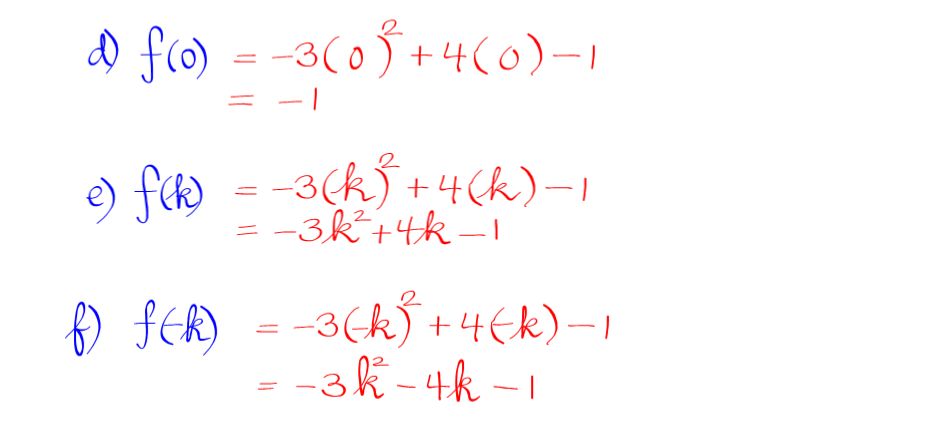 d) f(0) = -3(0)² + 4(0) - 1
= -1
e) f(k) = -3(k)² + 4(k) - 1
= -3k² + 4k - 1
f) f(-k) = -3(-k)² + 4(-k) - 1
= -3k² - 4k - 1